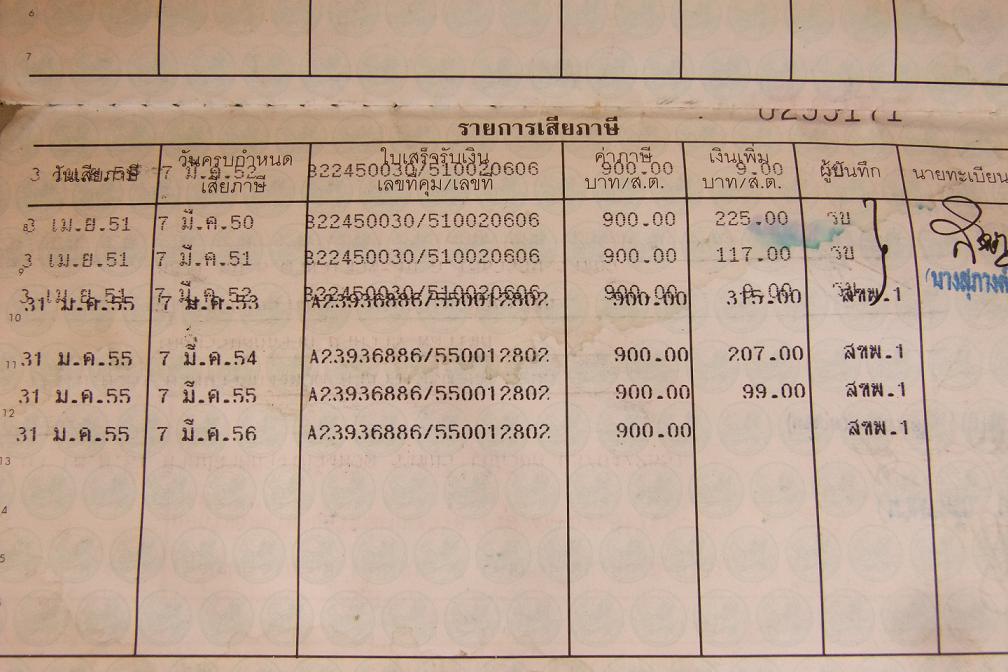 6
7
0255171
รายการเสียภาษี
วันเสียภาษี วันครบกำหนดเสียภาษี ใบเสร็จรับเงิน เลขที่คุม/เลขที่ ค่าภาษี บาท/ส.ต. เงินเพิ่ม บาท/ส.ต. ผู้บันทึก นายทะเบียน
3 7 มี.ค.52 B22450030/510020606 900.00 9.00
8 3 เม.ย.51 7 มี.ค.50 B22450030/510020606 900.00 225.00 รย
9 3 เม.ย.51 7 มี.ค.51 B22450030/510020606 900.00 117.00 รย
3 เม.ย.51 7 มี.ค.52 B22450030/510020606 900.00 รย
10 31 ม.ค.55 7 มี.ค.53 A23936886/550012802 900.00 315.00 สขพ.1
11 31 ม.ค.55 7 มี.ค.54 A23936886/550012802 900.00 207.00 สขพ.1
12 31 ม.ค.55 7 มี.ค.55 A23936886/550012802 900.00 99.00 สขพ.1
31 ม.ค.55 7 มี.ค.56 A23936886/550012802 900.00 สขพ.1
13
4
5